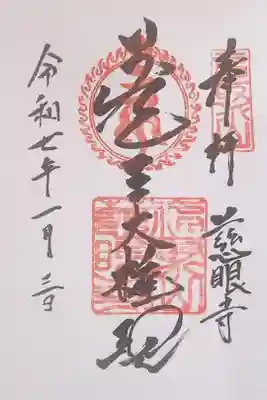 奉拝
慈眼寺
蔵王大権現
令和七年一月三日